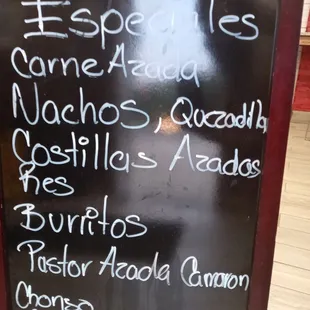 Especiales
Carne Azada
Nachos, Quezadilla
Costillas Azados
Res
Burritos
Pastor Azada Camaron